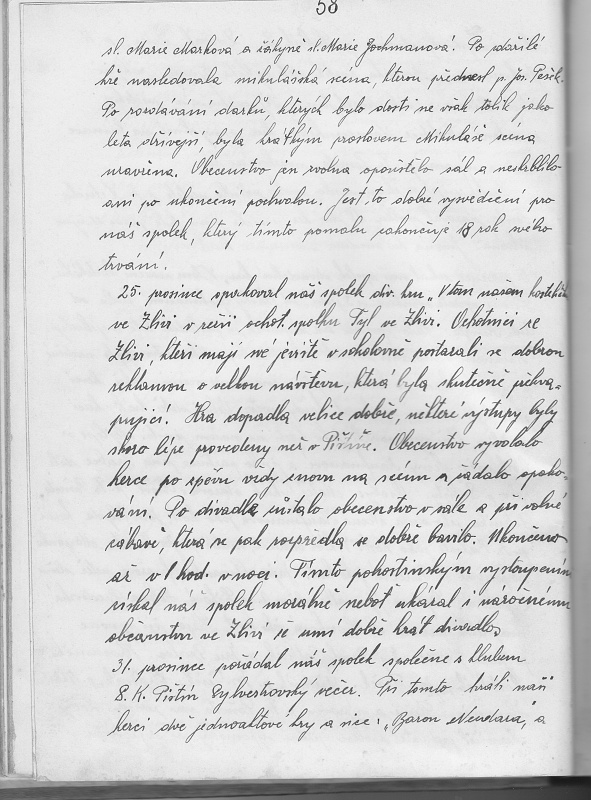 58
sl. Marie Marková a žákyně sl. Marie Jochmanová. Po zdařilé
hře následovala mikulášská scena, kterou přednesl p. Jos. Pešek.
Po rozdávání darků, kterých bylo dosti ne však tolik jako
léta dřívější, byla krátkým proslovem Mikuláše scéna
uzavřena. Obecenstvo jen zvolna opouštělo sál a neskrblilo
ani po ukončení pochvalou. Jest to dobré vysvědčení pro
náš spolek, který tímto pomalu zakončuje 18 rok svého
trvání.
25. prosince opakoval náš spolek div. hru „V tom našem kostelíčku
ve Zlivi v režii ochot. spolku Tyl ve Zlivi. Ochotníci ze
Zlivi, kteří mají své jeviště v sokolovně postarali se dobrou
reklamou o velkou návštěvu, která byla skutečně překva-
pující. Hra dopadla velice dobře, některé výstupy byly
skoro lépe provedeny než v Pištíně. Obecenstvo vyvolalo
herce po zpěvu vždy znovu na scénu a žádalo opako-
vání. Po divadle zůstalo obecenstvo v sále a při volné
zábavě, která se pak rozpředla se dobře bavilo. Ukončeno
až v 1 hod. v noci. Tímto pohostinským vystoupením
získal náš spolek morálně neboť ukázal i náročnému
občanstvu ve Zlivi že umí dobře hrát divadlo.
31. prosince pořádal náš spolek společně s klubem
S. K. Pištín Sylvestrovský večer. Při tomto hráli naši
herci dvě jednoaktové hry a sice: „Baron Nendara", a